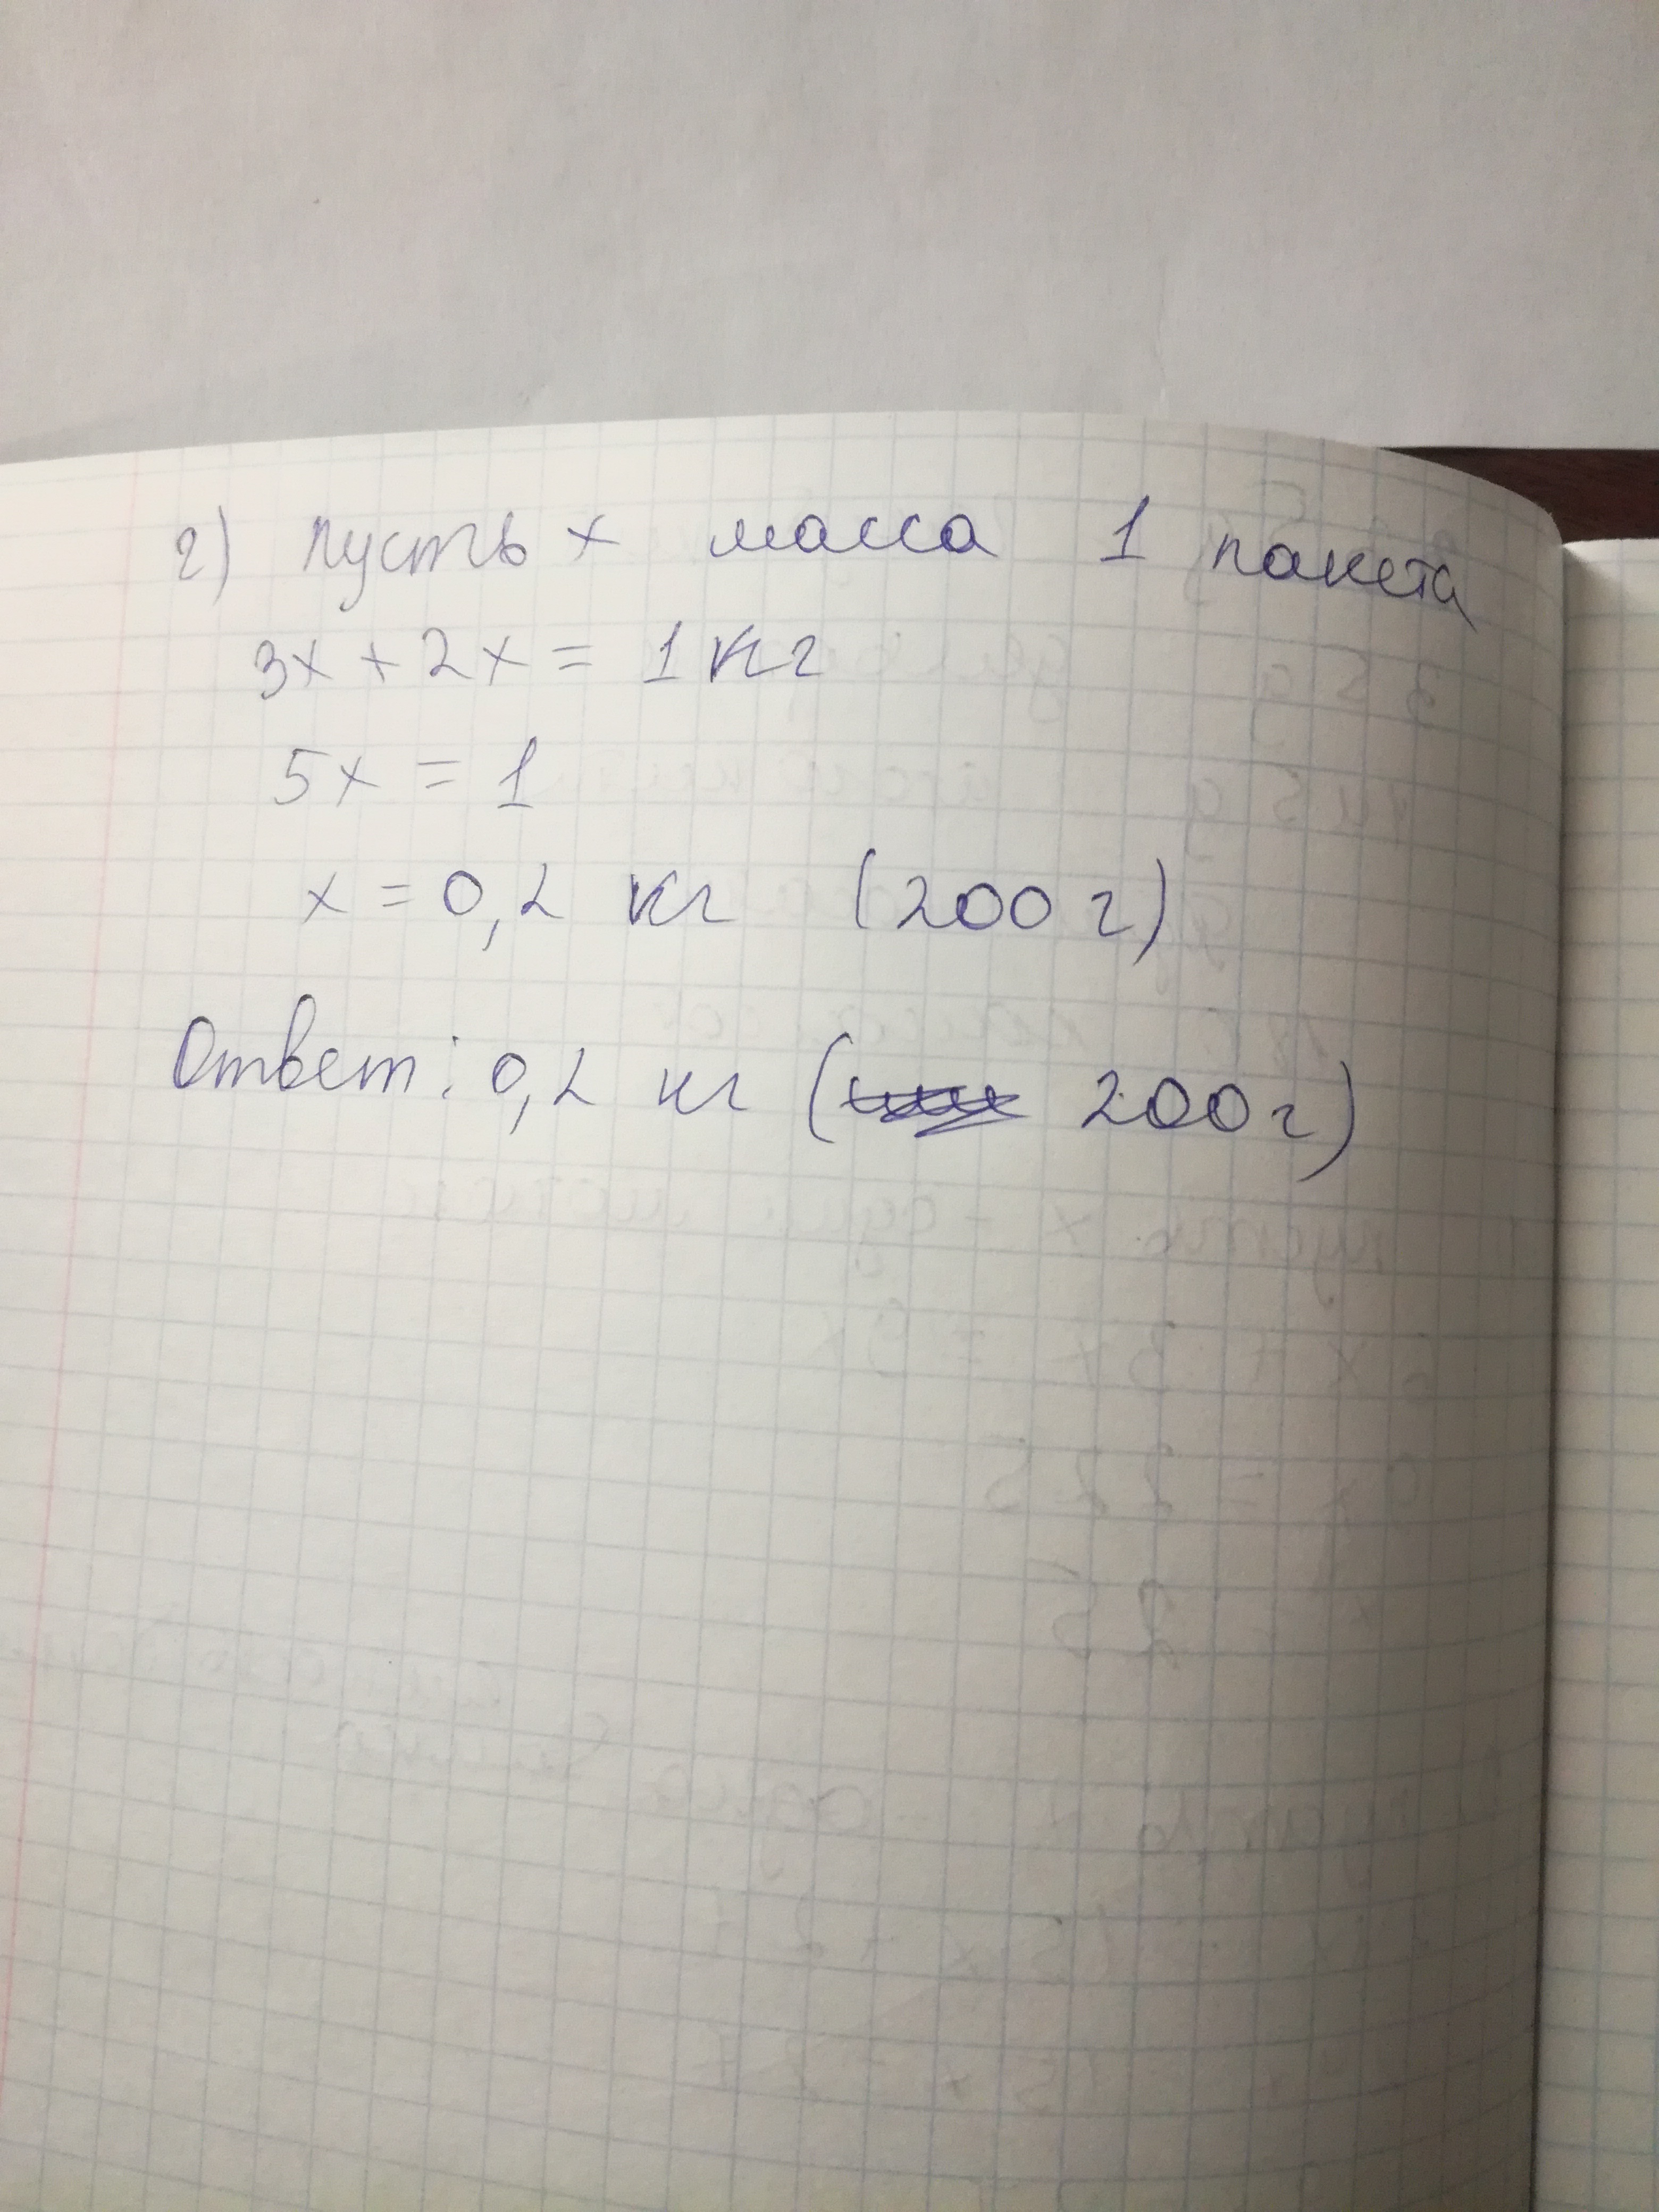 г) пусть x масса 1 пакета
3x + 2x = 1 кг
5x = 1
x = 0,2 кг (200 г)
Ответ: 0,2 кг (200 г)